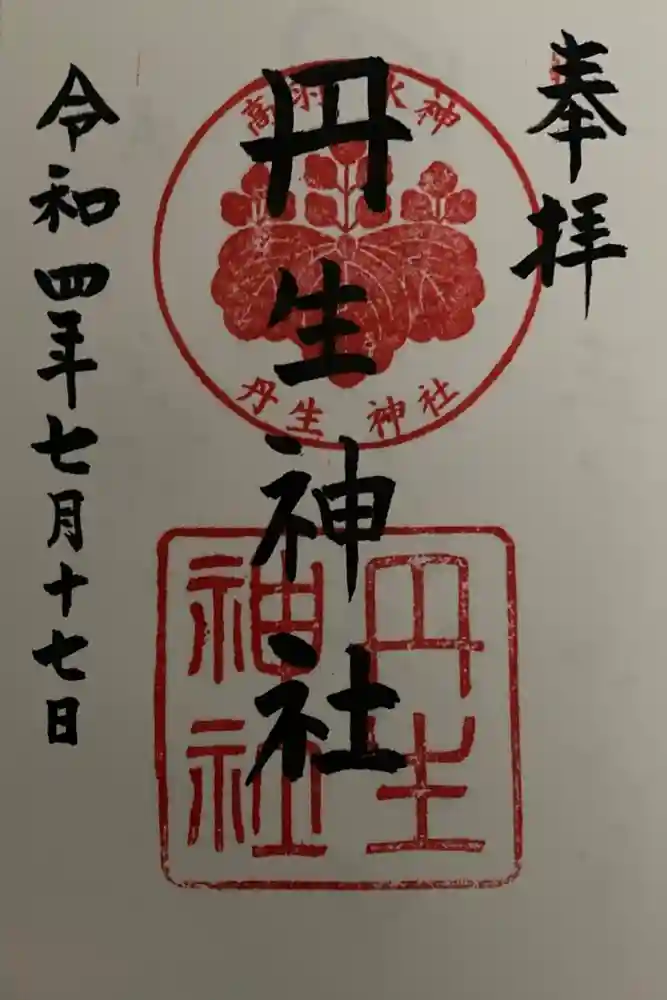 奉拝
丹生神社
高羽 水神
丹生 神社
丹生
神社
令和四年七月十七日